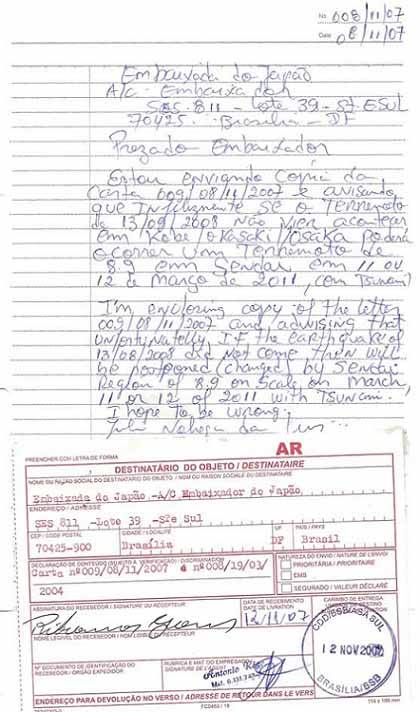 No 008/11/07
Date 08/11/07
Embaixada do Japão
A/c - Embaixador
SES. 811 - Lote 39 - St ESul
70425. Brasilia - DF
Prezado Embaixador
Estou enviando Copia da
Carta 009/08/11/2007 e avisando
que Infelizmente se o Terremoto
de 13/09/2008 não vier acontecer
em Kobe/Okasaki/Osaka poderá
ocorrer um Terremoto de
8.9 em Sendai em 11 ou
12 de março de 2011, com Tsunami
I'm enclosing copy of the letter
009/08/11/2007 and advising that
unfortynatelly, If the earthquake of
13/08/2008 did not come then will
be postponed (changed) by Sendai
Region of 8.9 on Scale on March,
11 or 12 of 2011 with Tsunami.
I hope to be wrong.
da
PREENCHER COM LETRA DE FORMA
AR
DESTINATÁRIO DO OBJETO / DESTINATAIRE
NOME OU RAZÃO SOCIAL DO DESTINATÁRIO DO OBJETO / NOM OU RAISON SOCIALE DU DESTINATAIRE
Embaixada do Japão -A/C Embaixador do Japão
ENDEREÇO / ADRESSE
SES 811 -Lote 39 -Stº Sul
CEP / CODE POSTAL
CIDADE / LOCALITÉ
UF
PAÍS / PAYS
70425-900
Brasília
DF
Brasil
DECLARAÇÃO DE CONTEÚDO (SUJEITO À VERIFICAÇÃO) / DISCRIMINACION
Carta nº009/08/11/2007 e nº008/19/03/
2004
NATUREZA DO ENVIO / NATURE DE L'ENVOI
PRIORITÁRIA / PRIORITAIRE
EMS
SEGURADO / VALEUR DÉCLARÉ
ASSINATURA DO RECEBEDOR / SIGNATURE DU RÉCEPTEUR
DATA DE RECEBIMENTO
DATE DE LIVRATION
12/11/07
CARIMBO DE ENTREGA
NOME LEGÍVEL DO RECEBEDOR / NOM LISIBLE DU RÉCEPTEUR
Nº DOCUMENTO DE IDENTIFICAÇÃO DO
RECEBEDOR / ÓRGÃO EXPEDIDOR
RUBRICA E MAT. DO EMPREGADO /
SIGNATURE DE L'AGENT
Antonio
12 NOV 2007
BRASÍLIA/BSB
ENDEREÇO PARA DEVOLUÇÃO NO VERSO / ADRESSE DE RETOUR DANS LE VERS
FC0463 / 16
114 x 186 mm